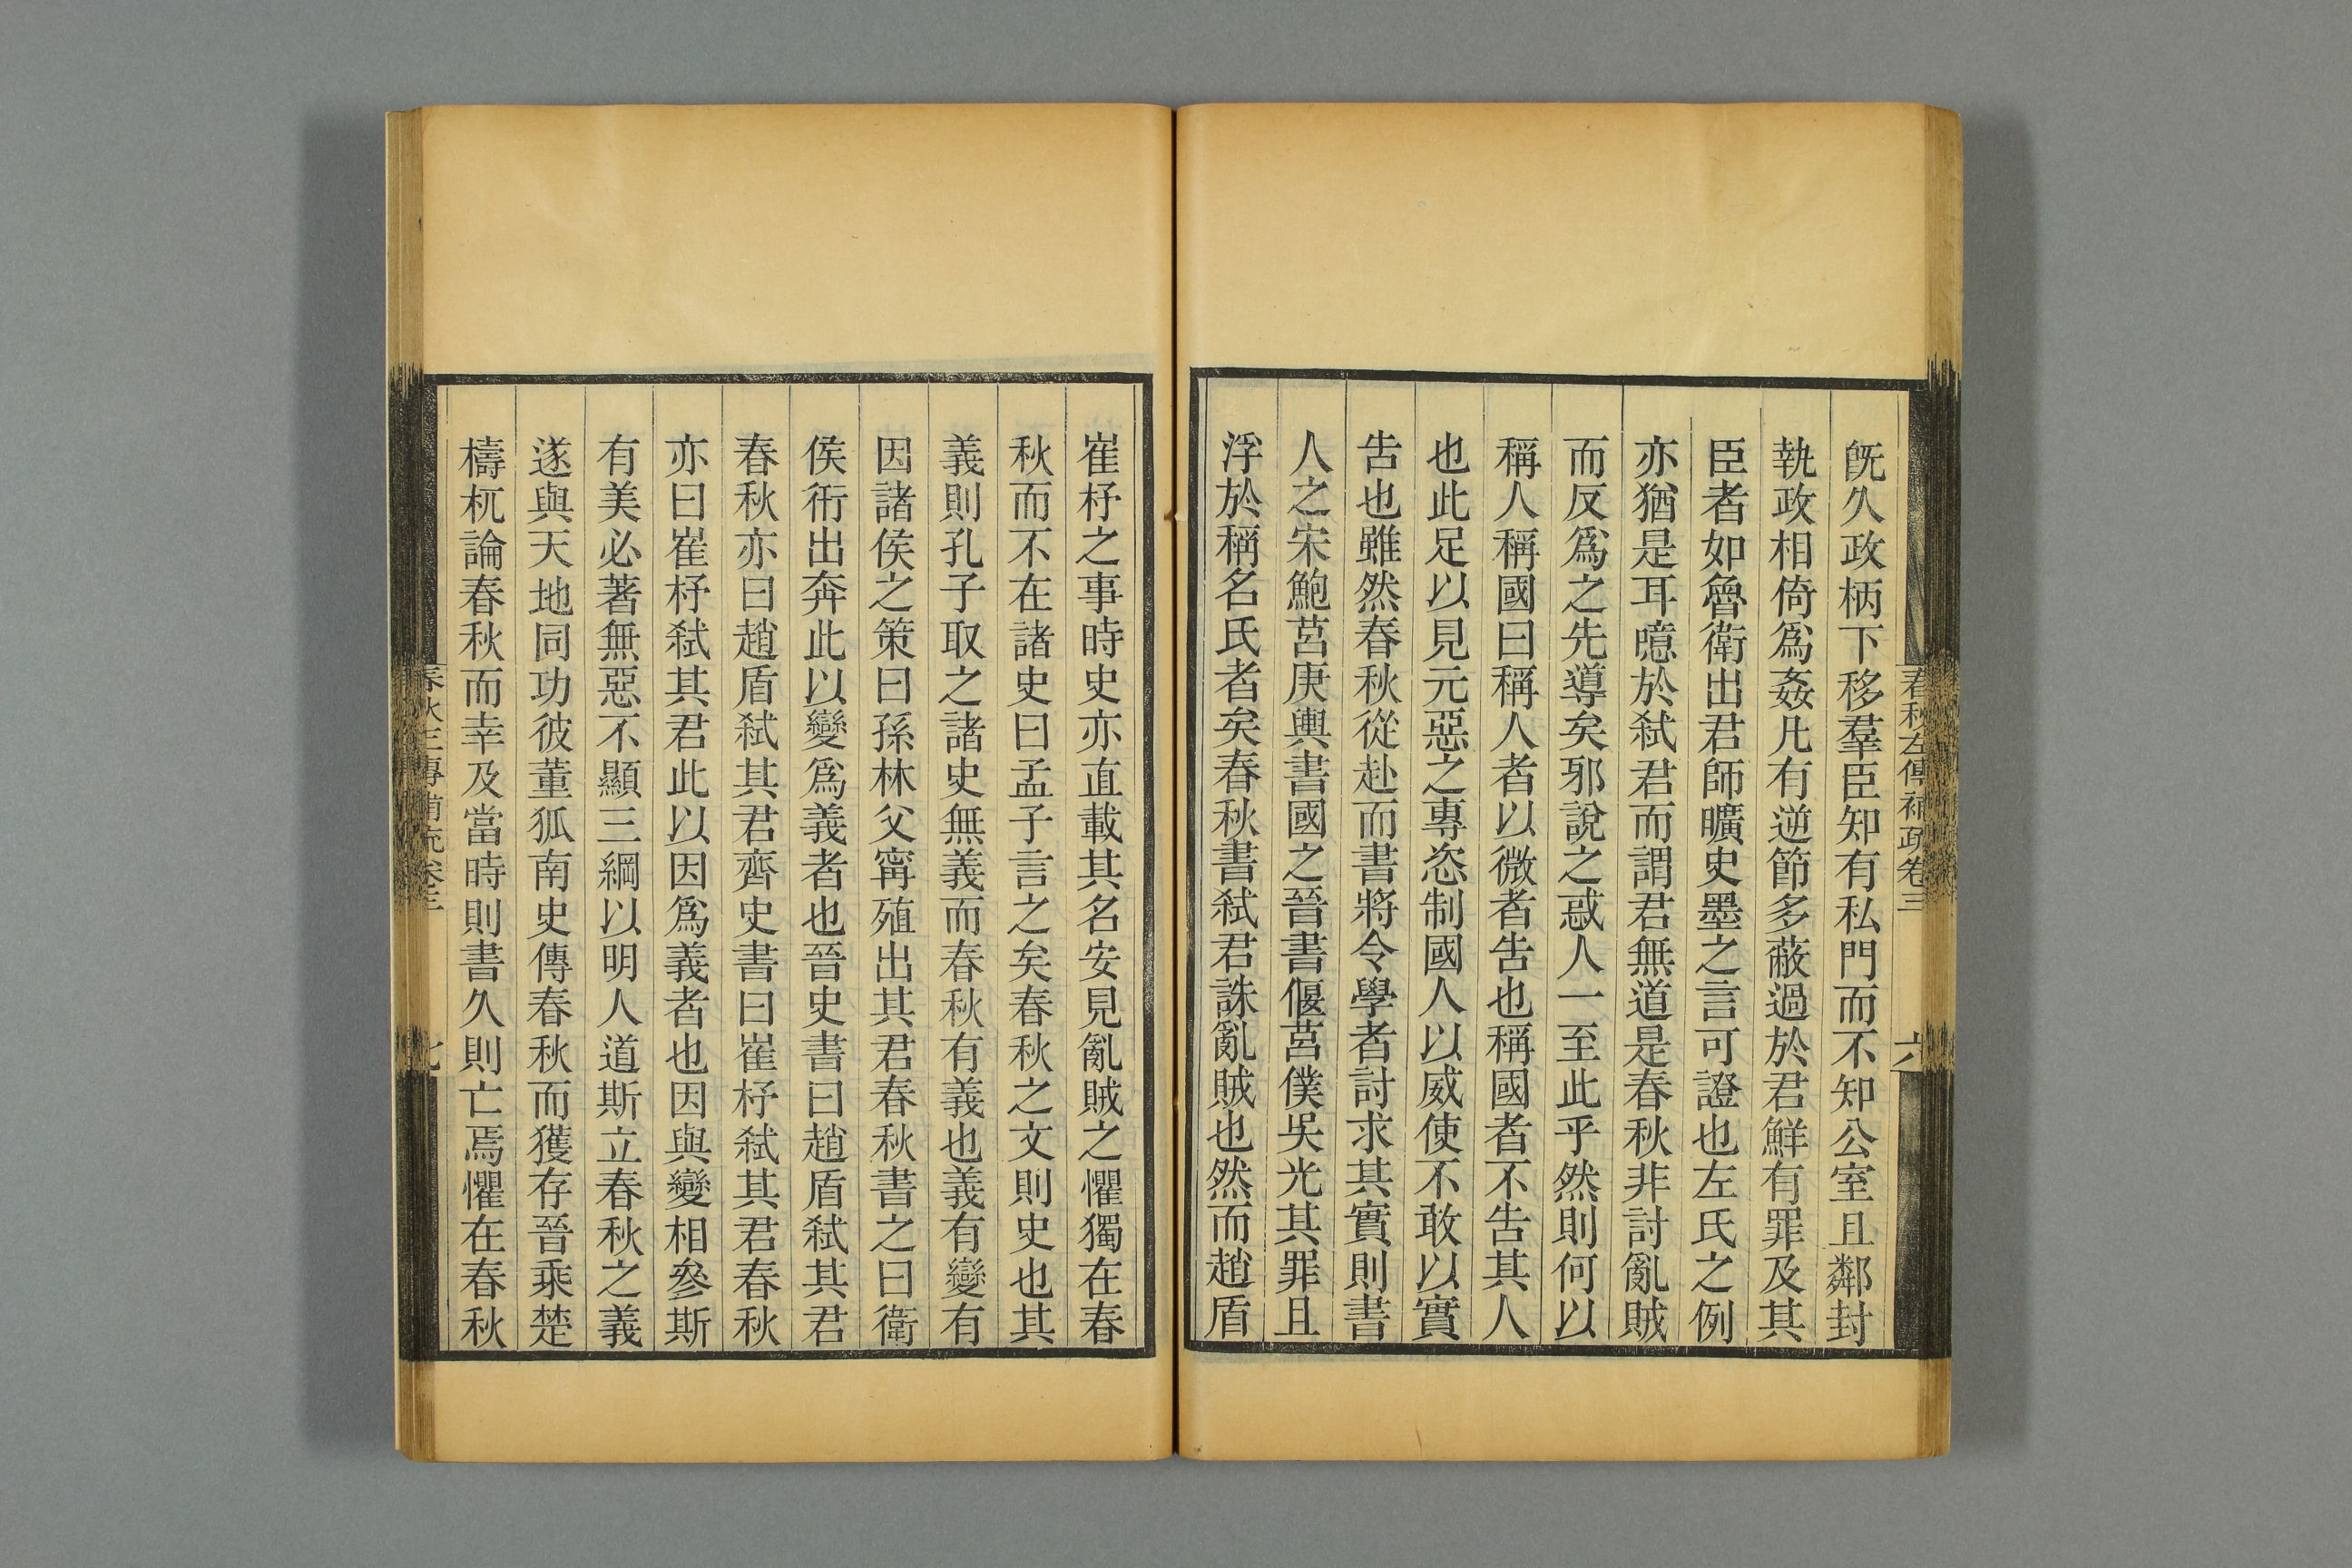 旣久政柄下移羣臣知有私門而不知公室且鄰封
執政相倚爲姦凡有逆節多蔽過於君鮮有罪及其
臣者如魯衛出君師曠史墨之言可證也左氏之例
亦猶是耳噫於弑君而謂君無道是春秋非討亂賊
而反爲之先導矣邪說之惑人一至此乎然則何以
稱人稱國曰稱人者以微者告也稱國者不告其人
也此足以見元惡之專恣制國人以威使不敢以實
告也雖然春秋從赴而書將令學者討求其實則書
人之宋鮑莒庚輿書國之晉書偃莒僕吳光其罪且
浮於稱名氏者矣春秋書弑君誅亂賊也然而趙盾
春秋左傳補疏卷三
六
崔杼之事時史亦直載其名安見亂賊之懼獨在春
秋而不在諸史曰孟子言之矣春秋之文則史也其
義則孔子取之諸史無義而春秋有義也義有變有
因諸侯之策曰孫林父甯殖出其君春秋書之曰衛
侯衎出奔此以變爲義者也晉史書曰趙盾弑其君
春秋亦曰趙盾弑其君齊史書曰崔杼弑其君春秋
亦曰崔杼弑其君此以因爲義者也因與變相參斯
有美必著無惡不顯三綱以明人道斯立春秋之義
遂與天地同功彼董狐南史傳春秋而獲存晉乘楚
檮杌論春秋而幸及當時則書久則亡焉懼在春秋
七